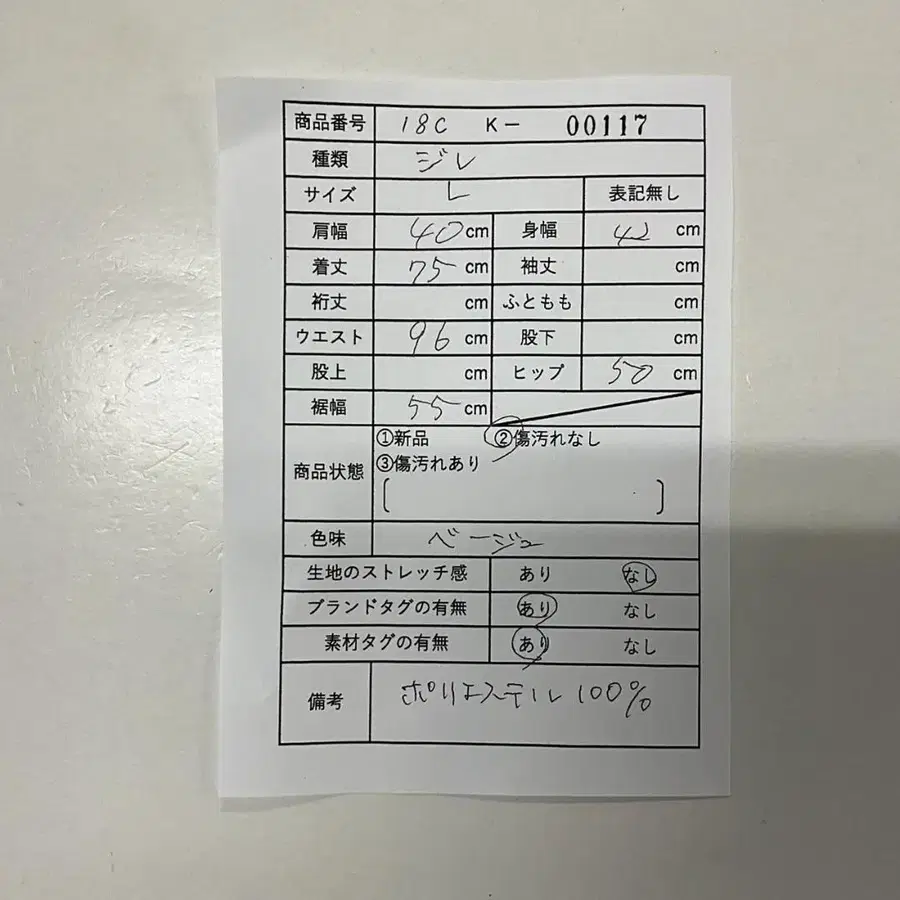 商品番号 18C K- 00117
種類 ジレ
サイズ L 表記無し
肩幅 40cm 身幅 42 cm
着丈 75 cm 袖丈 cm
裄丈 cm ふともも cm
ウエスト 96 cm 股下 cm
股上 cm ヒップ 50 cm
裾幅 55 cm
①新品 ②傷汚れなし
商品状態 ③傷汚れあり
[ ]
色味 ベージュ
生地のストレッチ感 あり なし
ブランドタグの有無 あり なし
素材タグの有無 あり なし
備考 ポリエステル100%